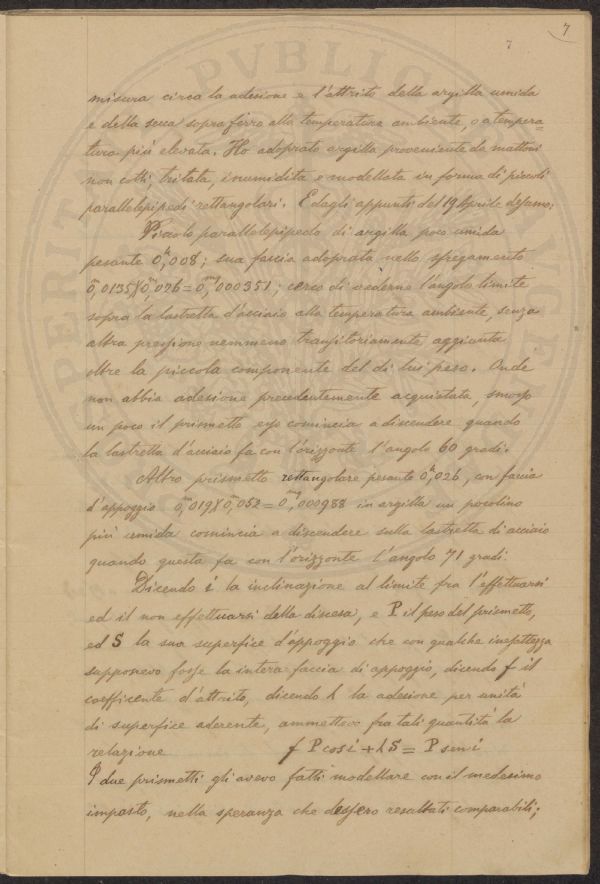 7
7
misura circa la adesione e l'attrito della argilla umida
e della secca sopra ferro alla temperatura ambiente, o a tempera=
tura più elevata. Ho adoprato argilla proveniente da mattoni
non cotti, tritata, inumidita e modellata in forma di piccoli
parallelepipedi rettangolari. E dagli appunti del 19 Aprile desumo:
Piccolo parallelepipedo di argilla poco umida
pesante 0,k008; sua faccia adoprata nello sfregamento
0,m0135X0,m026=0,mq000351; cerco di vederne l'angolo limite
sopra la lastretta d'acciaio alla temperatura ambiente, senza
altra pressione nemmeno transitoriamente aggiunta
oltre la piccola componente del di lui peso. Onde
non abbia adesione precedentemente acquistata, smosso
un poco il prismetto esso comincia a discendere quando
la lastretta d'acciaio fa con l'orizzonte l'angolo 60 gradi.
Altro prismetto rettangolare pesante 0,k026, con faccia
d'appoggio 0,m019X0,m052=0,mq000988 in argilla un pocolino
più umida comincia a discendere sulla lastretta di acciaio
quando questa fa con l'orizzonte l'angolo 71 gradi.
Dicendo i la inclinazione al limite fra l'effettuarsi
ed il non effettuarsi della discesa, e P il peso del prismetto,
ed S la sua superfice d'appoggio che con qualche inesattezza
supponevo fosse la intera faccia di appoggio, dicendo f il
coefficente d'attrito, dicendo h la adesione per unità
di superfice aderente, ammettevo fra tali quantità la
relazione f P cos i + h S = P sen i
I due prismetti gli avevo fatti modellare con il medesimo
impasto, nella speranza che dessero resultati comparabili;